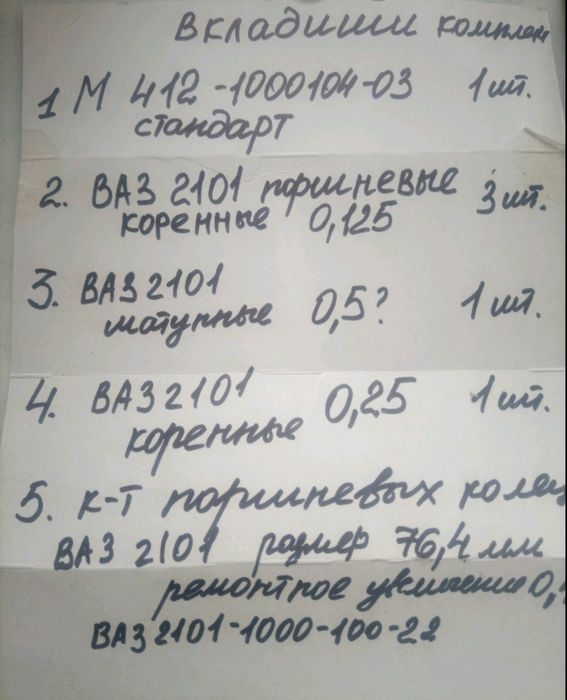 Вкладиши комплек
1 М 412-1000104-03 1 шт.
стандарт
2. ВАЗ 2101 поршневые 3 шт.
коренные 0,125
3. ВАЗ 2101
матупные 0,5? 1 шт.
4. ВАЗ 2101 0,25 1 шт.
коренные
5. к-т поршневых колец
ВАЗ 2101 размер 76,4 мм
ремонтное 0,
ВАЗ 2101-1000-100-22